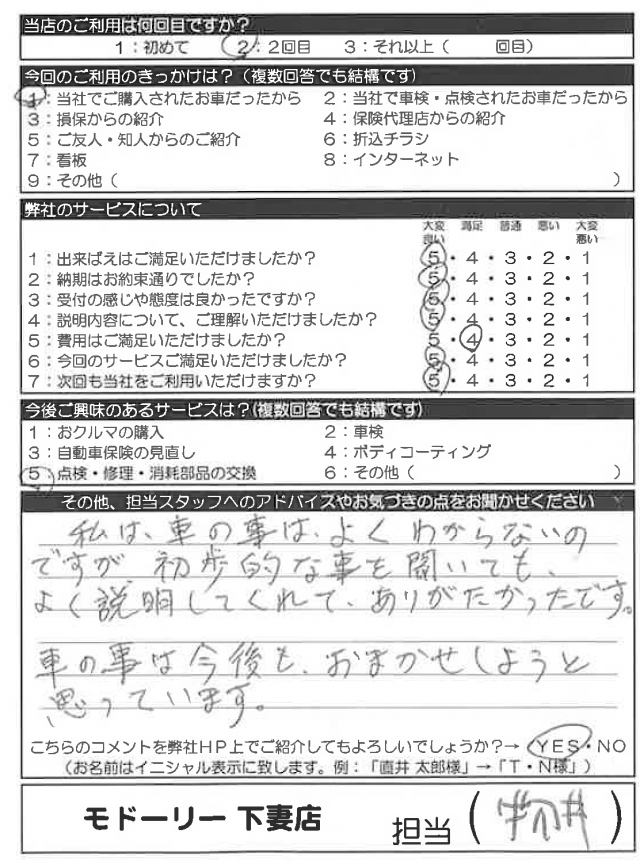 当店のご利用は何回目ですか?
1:初めて 2:2回目 3:それ以上( 回目)
今回のご利用のきっかけは?(複数回答でも結構です)
1:当社でご購入されたお車だったから 2:当社で車検・点検されたお車だったから
3:損保からの紹介 4:保険代理店からの紹介
5:ご友人・知人からのご紹介 6:折込チラシ
7:看板 8:インターネット
9:その他( )
弊社のサービスについて
大変良い 満足 普通 悪い 大変悪い
1:出来ばえはご満足いただけましたか? 5・4・3・2・1
2:納期はお約束通りでしたか? 5・4・3・2・1
3:受付の感じや態度は良かったですか? 5・4・3・2・1
4:説明内容について、ご理解いただけましたか? 5・4・3・2・1
5:費用はご満足いただけましたか? 5・4・3・2・1
6:今回のサービスご満足いただけましたか? 5・4・3・2・1
7:次回も当社をご利用いただけますか? 5・4・3・2・1
今後ご興味のあるサービスは?(複数回答でも結構です)
1:おクルマの購入 2:車検
3:自動車保険の見直し 4:ボディコーティング
5:点検・修理・消耗部品の交換 6:その他( )
その他、担当スタッフへのアドバイスやお気づきの点をお聞かせください
私は、車の事は、よくわからないの
ですが 初歩的な事を聞いても、
よく説明してくれて、ありがたかったです。
車の事は今後も、おまかせしようと
思っています。
こちらのコメントを弊社HP上でご紹介してもよろしいでしょうか?→ YES・NO
(お名前はイニシャル表示に致します。例:「直井 太郎様」→「T・N様」)
モドーリー 下妻店 担当( )